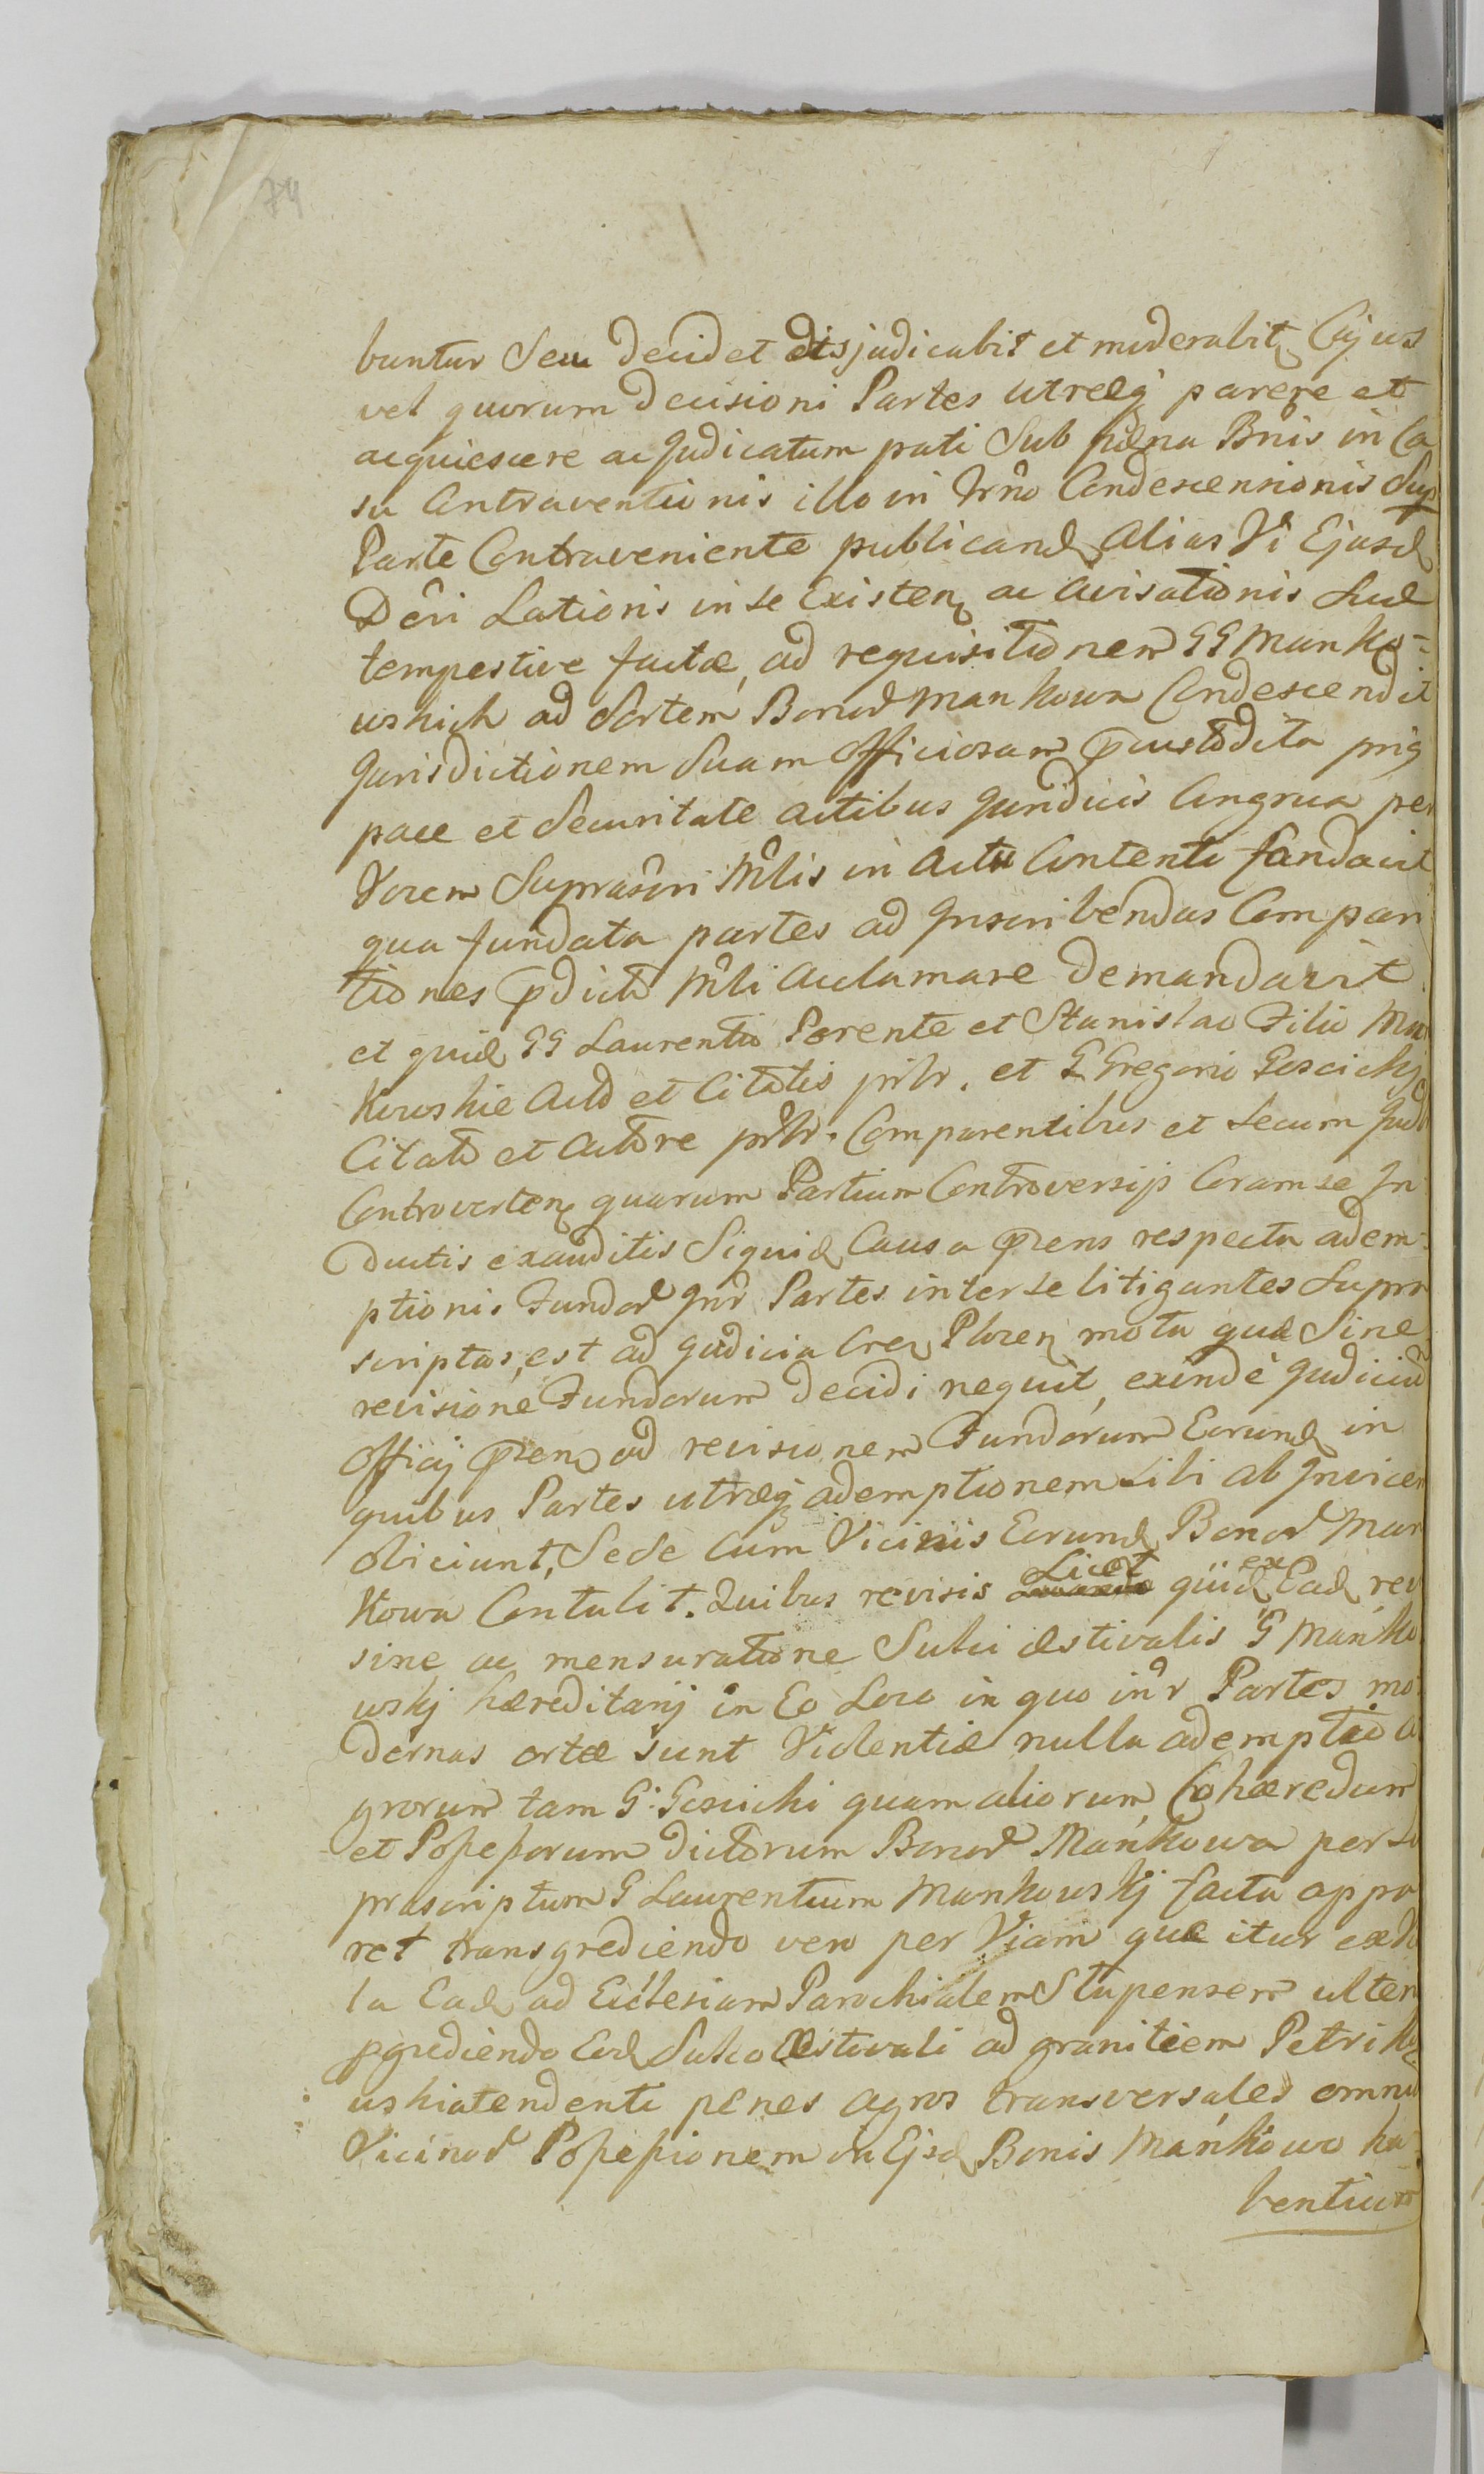 74
buntur Seu decidet disjudicabit et moderabit Cujus
vel quorum decisioni Partes utræq parere et
acquiescere ac Judicatum pati Sub pæna Bnis in Ca
su Contraventionis illo in Trno Condescensionis Sup
Parte Contraveniente publicand alias Vi Ejusd
Dcri Lationis in se Existen ac avisationis Suæ
tempestive factæ, ad requisitionem GG Manko-
wskich ad Sortem Bonor Mankowa Condescendit
Jurisdictionem Suam Officiosam Pcustodita priq
pace et Securitate actibus Juridicis Congrua per
Vocem Suprascri Mlis in Actu Contenti fundavit
qua fundata partes ad Inscribendas Compari
tiones Pdicto Mli acclamare demandavit
et quid GG Laurentio Parente et Stanislao Filio Man
kowskie Acto et Citatis prtr. et G Gregorio Goscicky
Citato et Actore prtr. Comparentibus et Secum Judr
Controverten quarum Partium Controversijs Coram se In
ductis exauditis Siquid Causa Præns respectu adem-
ptionis Fundor Intr Partes inter se litigantes Supra
scriptas, est ad Judicia Cren Plocen mota quæ Sine
revisione Fundorum decidi nequit, exinde Judiciu
Officij Præn ad revisionem Fundorum Eorund in
quibus Partes utræq ademptionem Sibi ab Invicem
obiciunt, Sese Cum Vicinis Eorund Bonor Man
kowa Contulit. Quibus revisis Licet quid ex Ead revi
sine ac mensuratione Sulci æstivalis G Manko
wskj hæreditarij in Eo Loco in quo intr Partes mo
dernas ortæ sunt Violentiæ nulla ademptio a
grorum tam G. Goscicki quam aliorum Cohæredum
et Possessorum dictorum Bonor Mańkowa per Su
prascriptum G Laurentium Mankowskj facta appa
ret transgrediendo vero per Viam quæ itur ex Vi
la Ead ad Ecclesiam Parochialem Stupensem ulteri
pgrediendo Eod Sulco Æstivali ad granitiem Petriko
wskiatendenti penes agros transversales omniu
Vicinor Possessionem in Ejsd Bonis Mańkowo ha-
bentium